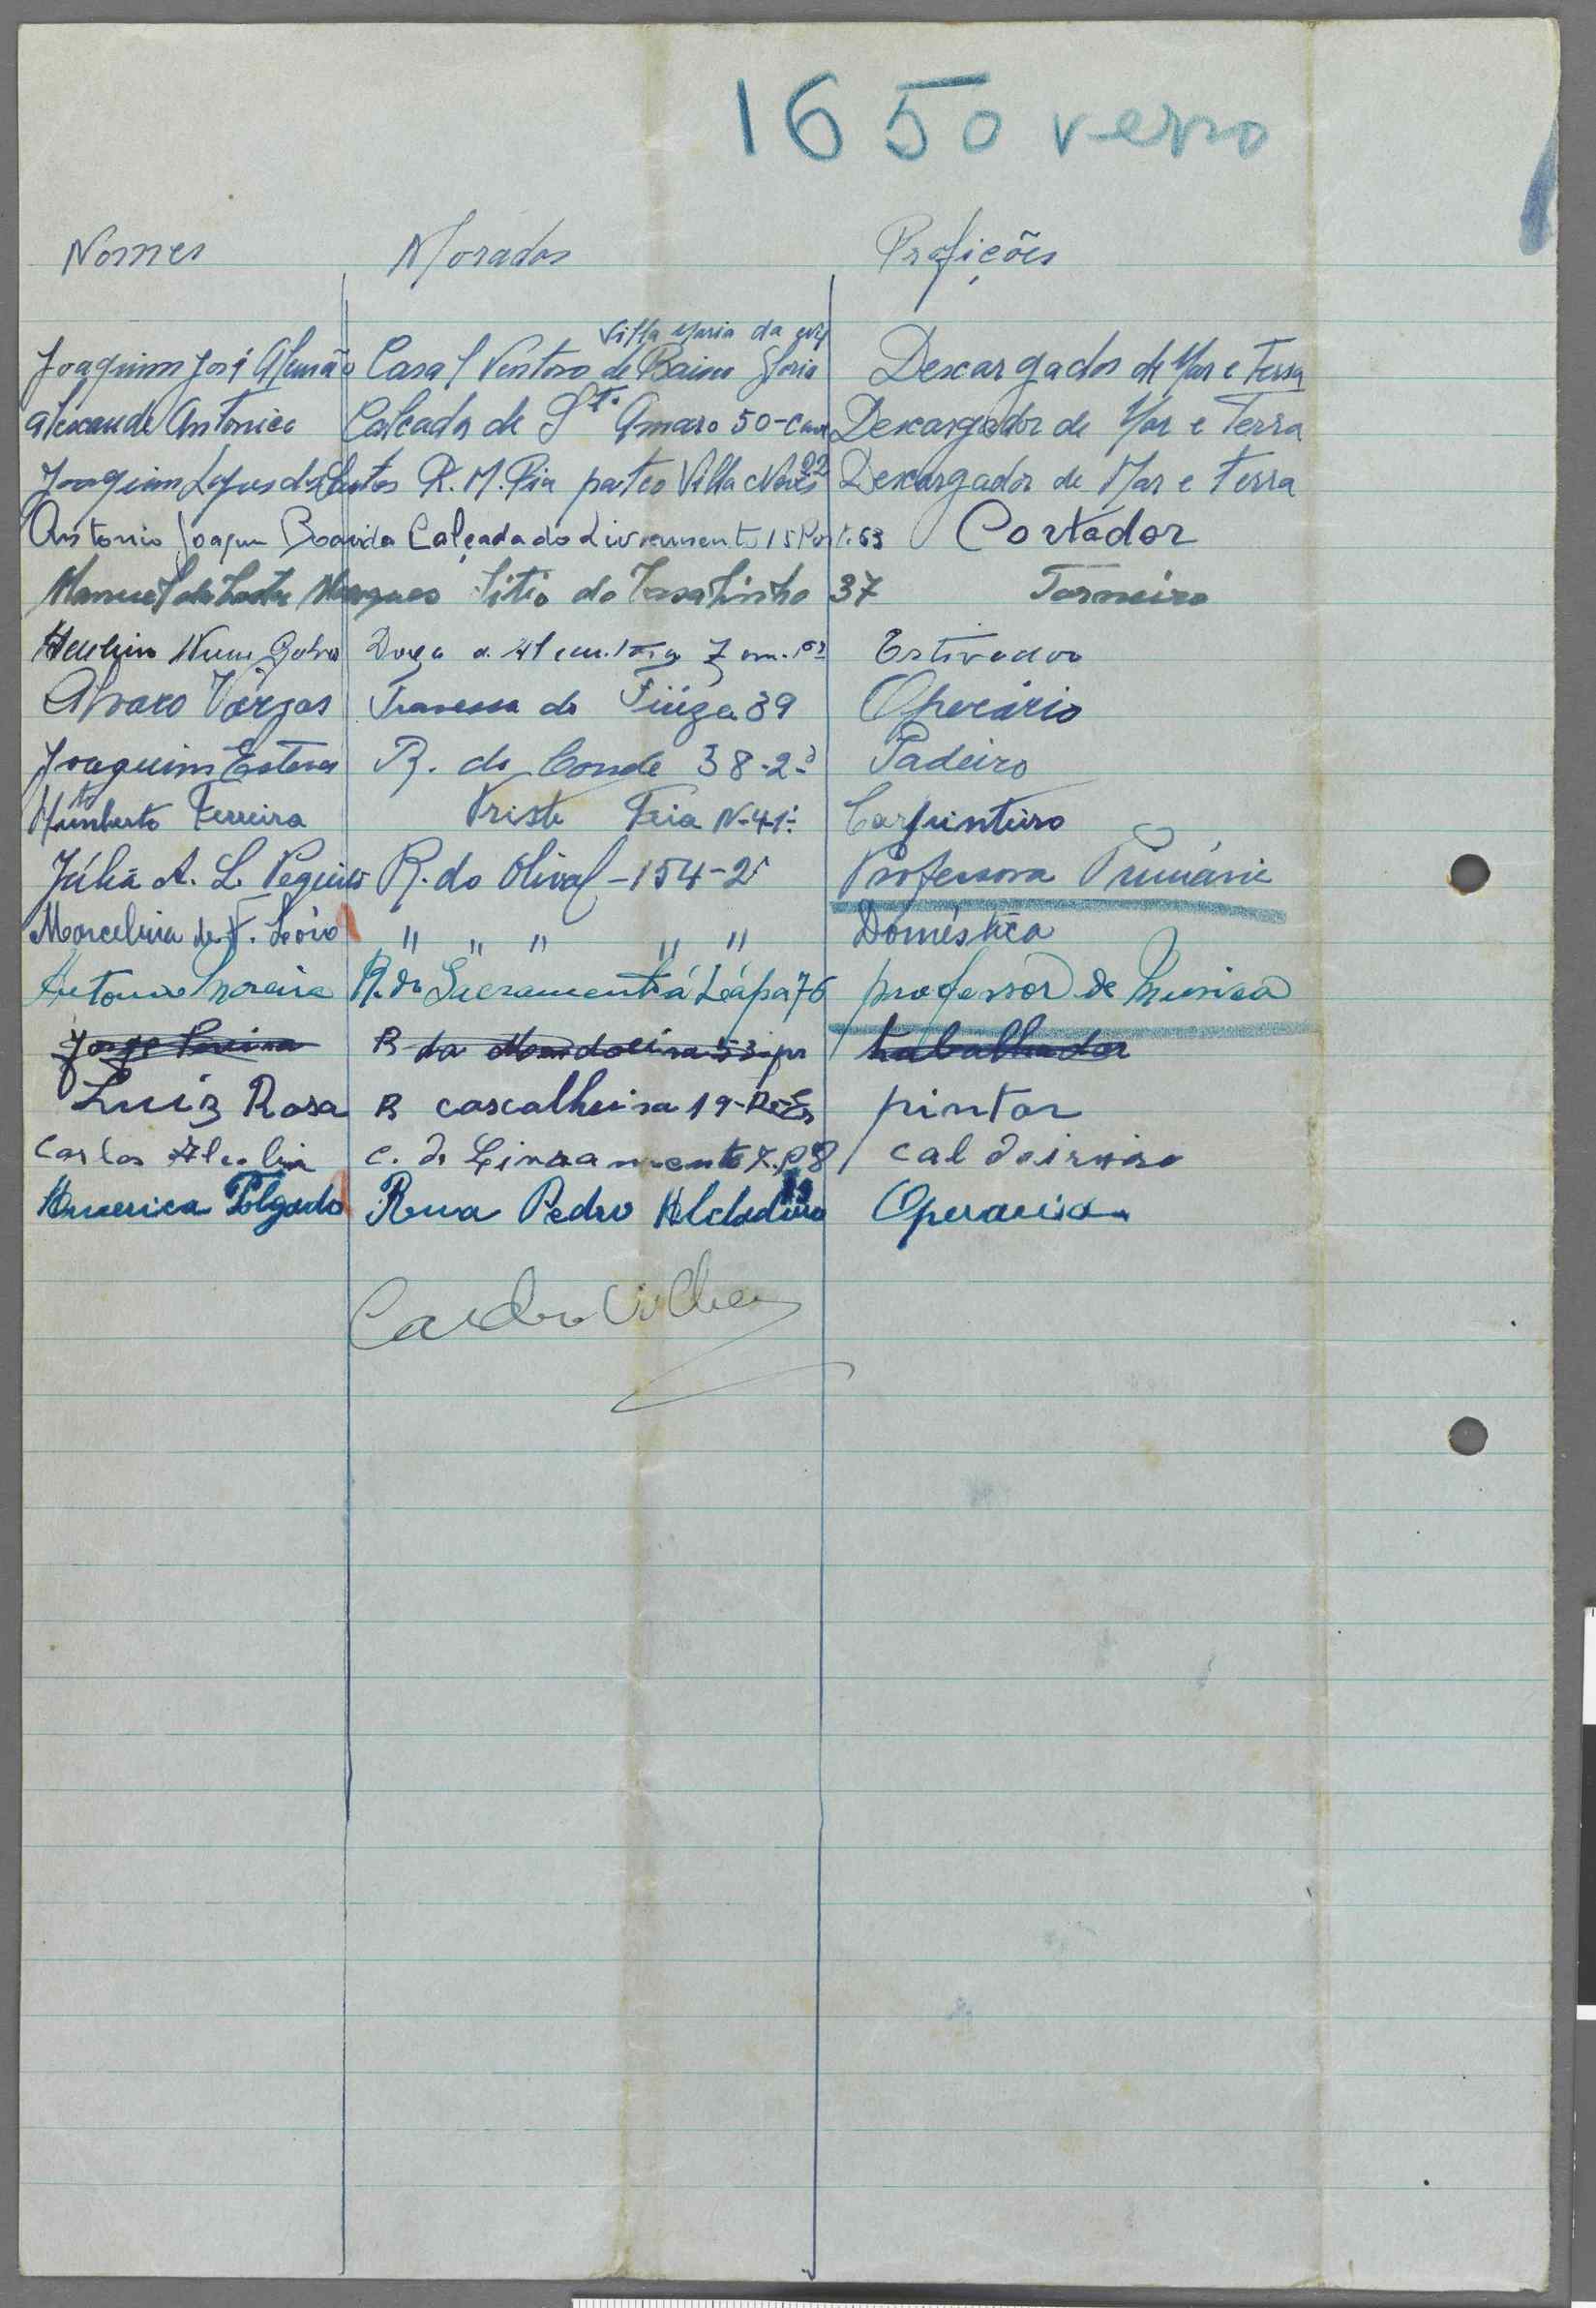 1650 verso
Nomes Moradas Profições
Villa Maria da
Joaquim José Alemão Casal Ventoso de Baixo Gloria Descargador de Mar e Terra
Antonico Calcada de Sto. Amaro 50-Cave Descargador de Mar e Terra
22
Joaquim Lopes dos Santos R. M. Pia pateo Villa Neves Descargador de Mar e Terra
Antonio Joaquim Boavida Calçada do Livramento 15 Port. 63 Cortador
Manuel da Marques Sitio do Casalinho 37 Torneiro
Nunes Doca 7 Estivador
Alvaro Vargas Travessa do Fiúza 39 Operário
Joaquim Esteves R. do Conde 38-2º Padeiro
Humberto Ferreira Triste Feia N-41 Carpinteiro
Júlia A. L. R. do Olival -154-2º Professora Primária
Marcelina de F. Leório " " " " " Doméstica
Antonio Moreira R. do Sacramento á Lápa 76 professor de Musica
Jorge Pereira R da 53 trabalhador
Luiz Rosa R cascalheira 19-R-Es pintor
Carlos C. do Livramento 7. P8 caldeireiro
19
America Folgado Rua Pedro Operaria